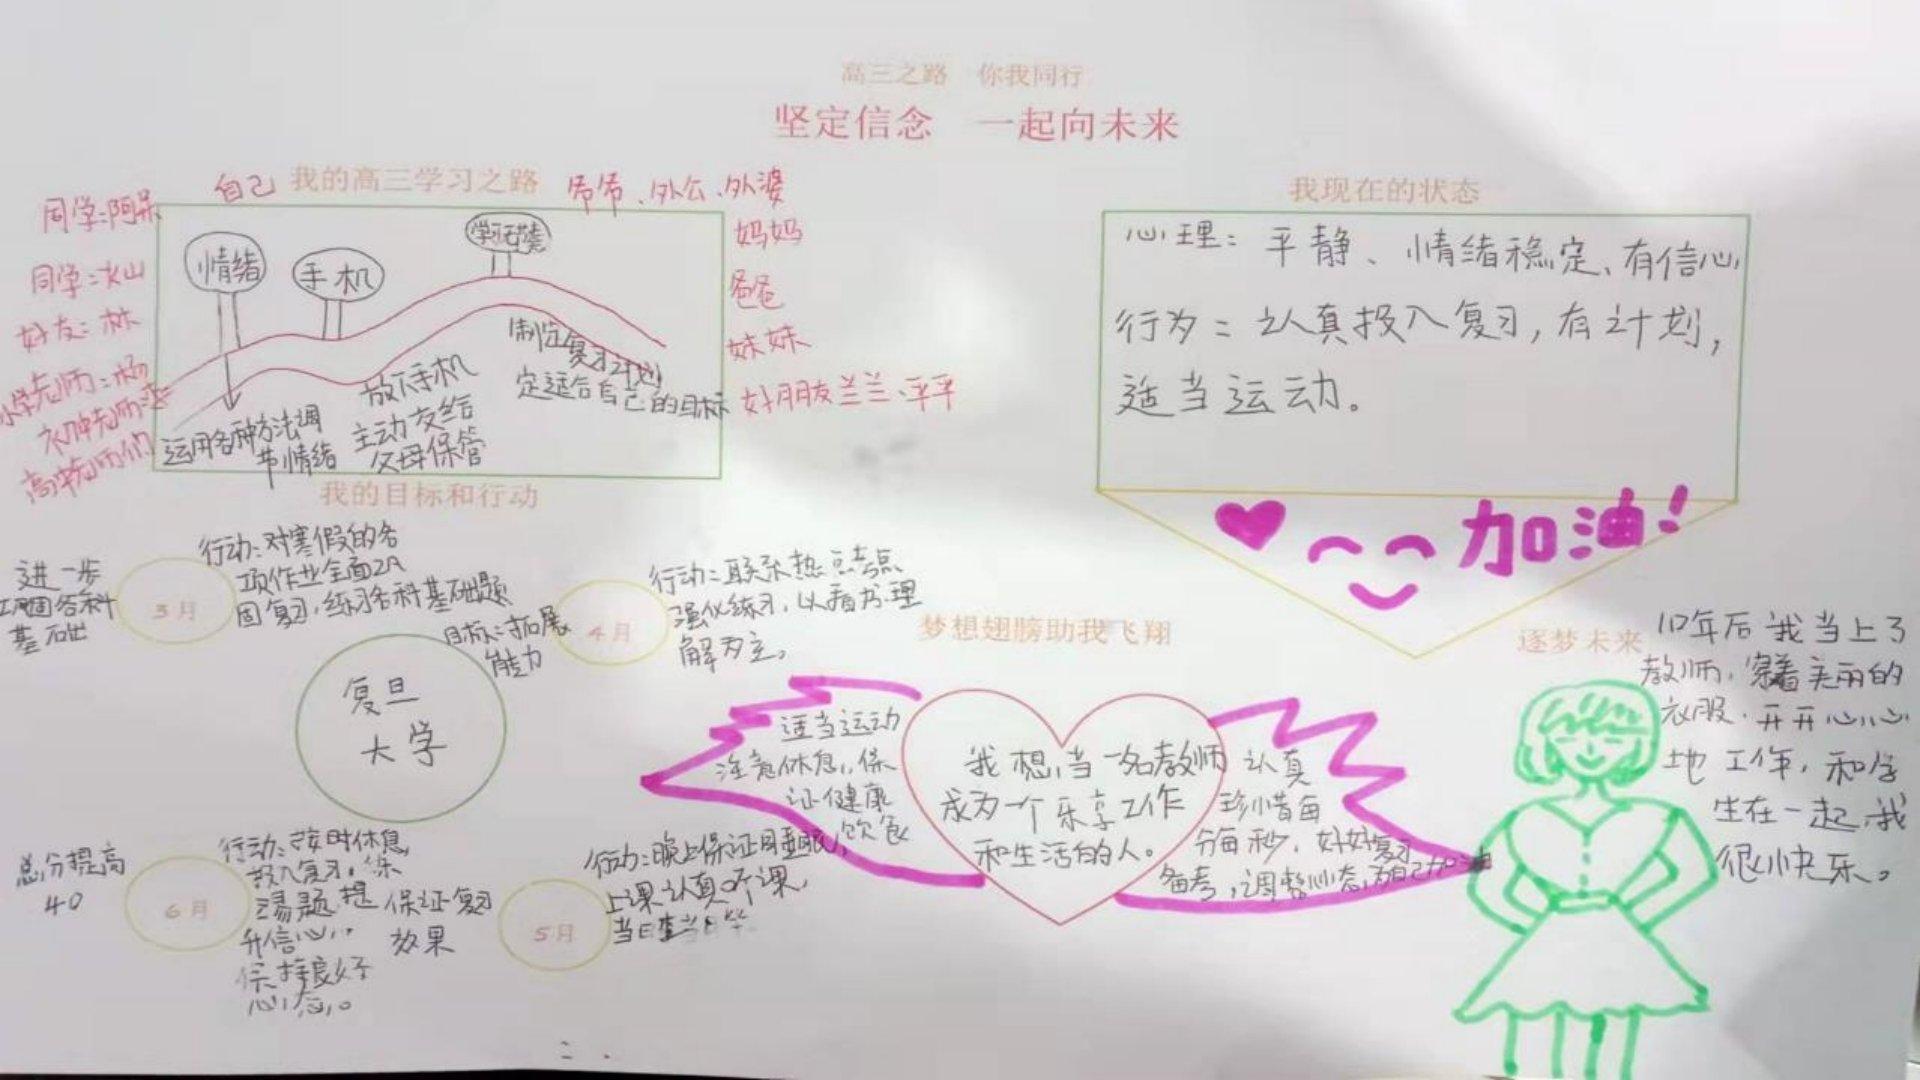 高三之路 你我同行
坚定信念 一起向未来
自己 我的高三学习之路
外公、外婆
同学:阿呆
同学:火山
好友:林
小学老师:杨
初中老师:
高中老师们
妈妈
爸爸
妹妹
好朋友兰兰、平平
情绪
手机
运用各种方法调
节情绪
放下手机
主动交给
父母保管
制定复习计划
定适合自己的目标
我现在的状态
心理:平静、情绪稳定、有信心
行为:认真投入复习,有计划,
适当运动。
加油!
我的目标和行动
进一步
巩固各科
基础
3月
行动:对寒假的各
项作业全面巩
固复习,练习各科基础题
目标:拓展
能力
4月
行动:联系热点考点
强化练习,以看书理
解为主。
复旦
大学
总分提高
40
6月
行动:按时休息,
投入复习。练
易题提
升信心,
保持良好
心态。
保证复习
效果
5月
行动:晚上保证用睡眠,
上课认真听课,
当日查当日毕
梦想翅膀助我飞翔
适当运动
注意休息,保
证健康
饮食
我想当一名教师
成为一个乐享工作
和生活的人。
认真
珍惜每
分每秒,好好复习
备考,调整心态,为自己加油
逐梦未来
10年后我当上了
教师,穿着美丽的
衣服,开开心心
地工作,和学
生在一起,我
很快乐。